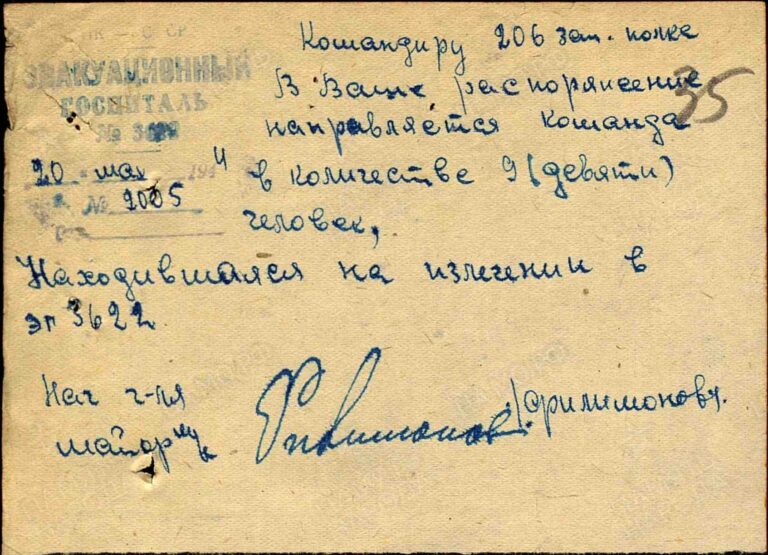 НК - СССР
ЭВАКУАЦИОННЫЙ
ГОСПИТАЛЬ
№ 3622
20 " мая 194 4
№ 2005
35
Командиру 206 зап. полка
В Ваше распоряжение
направляется команда
в количестве 9 (девяти)
человек,
Находившаяся на излечении в
эг 3622
Нач г-ля
майор м/с
/Филимонов/.